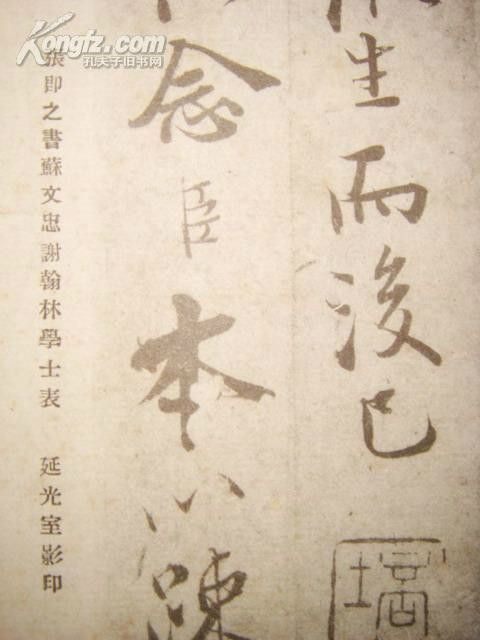 生而後已
念臣本以疎
張即之書蘇文忠謝翰林學士表 延光室影印
Kongfz.com
孔夫子旧书网